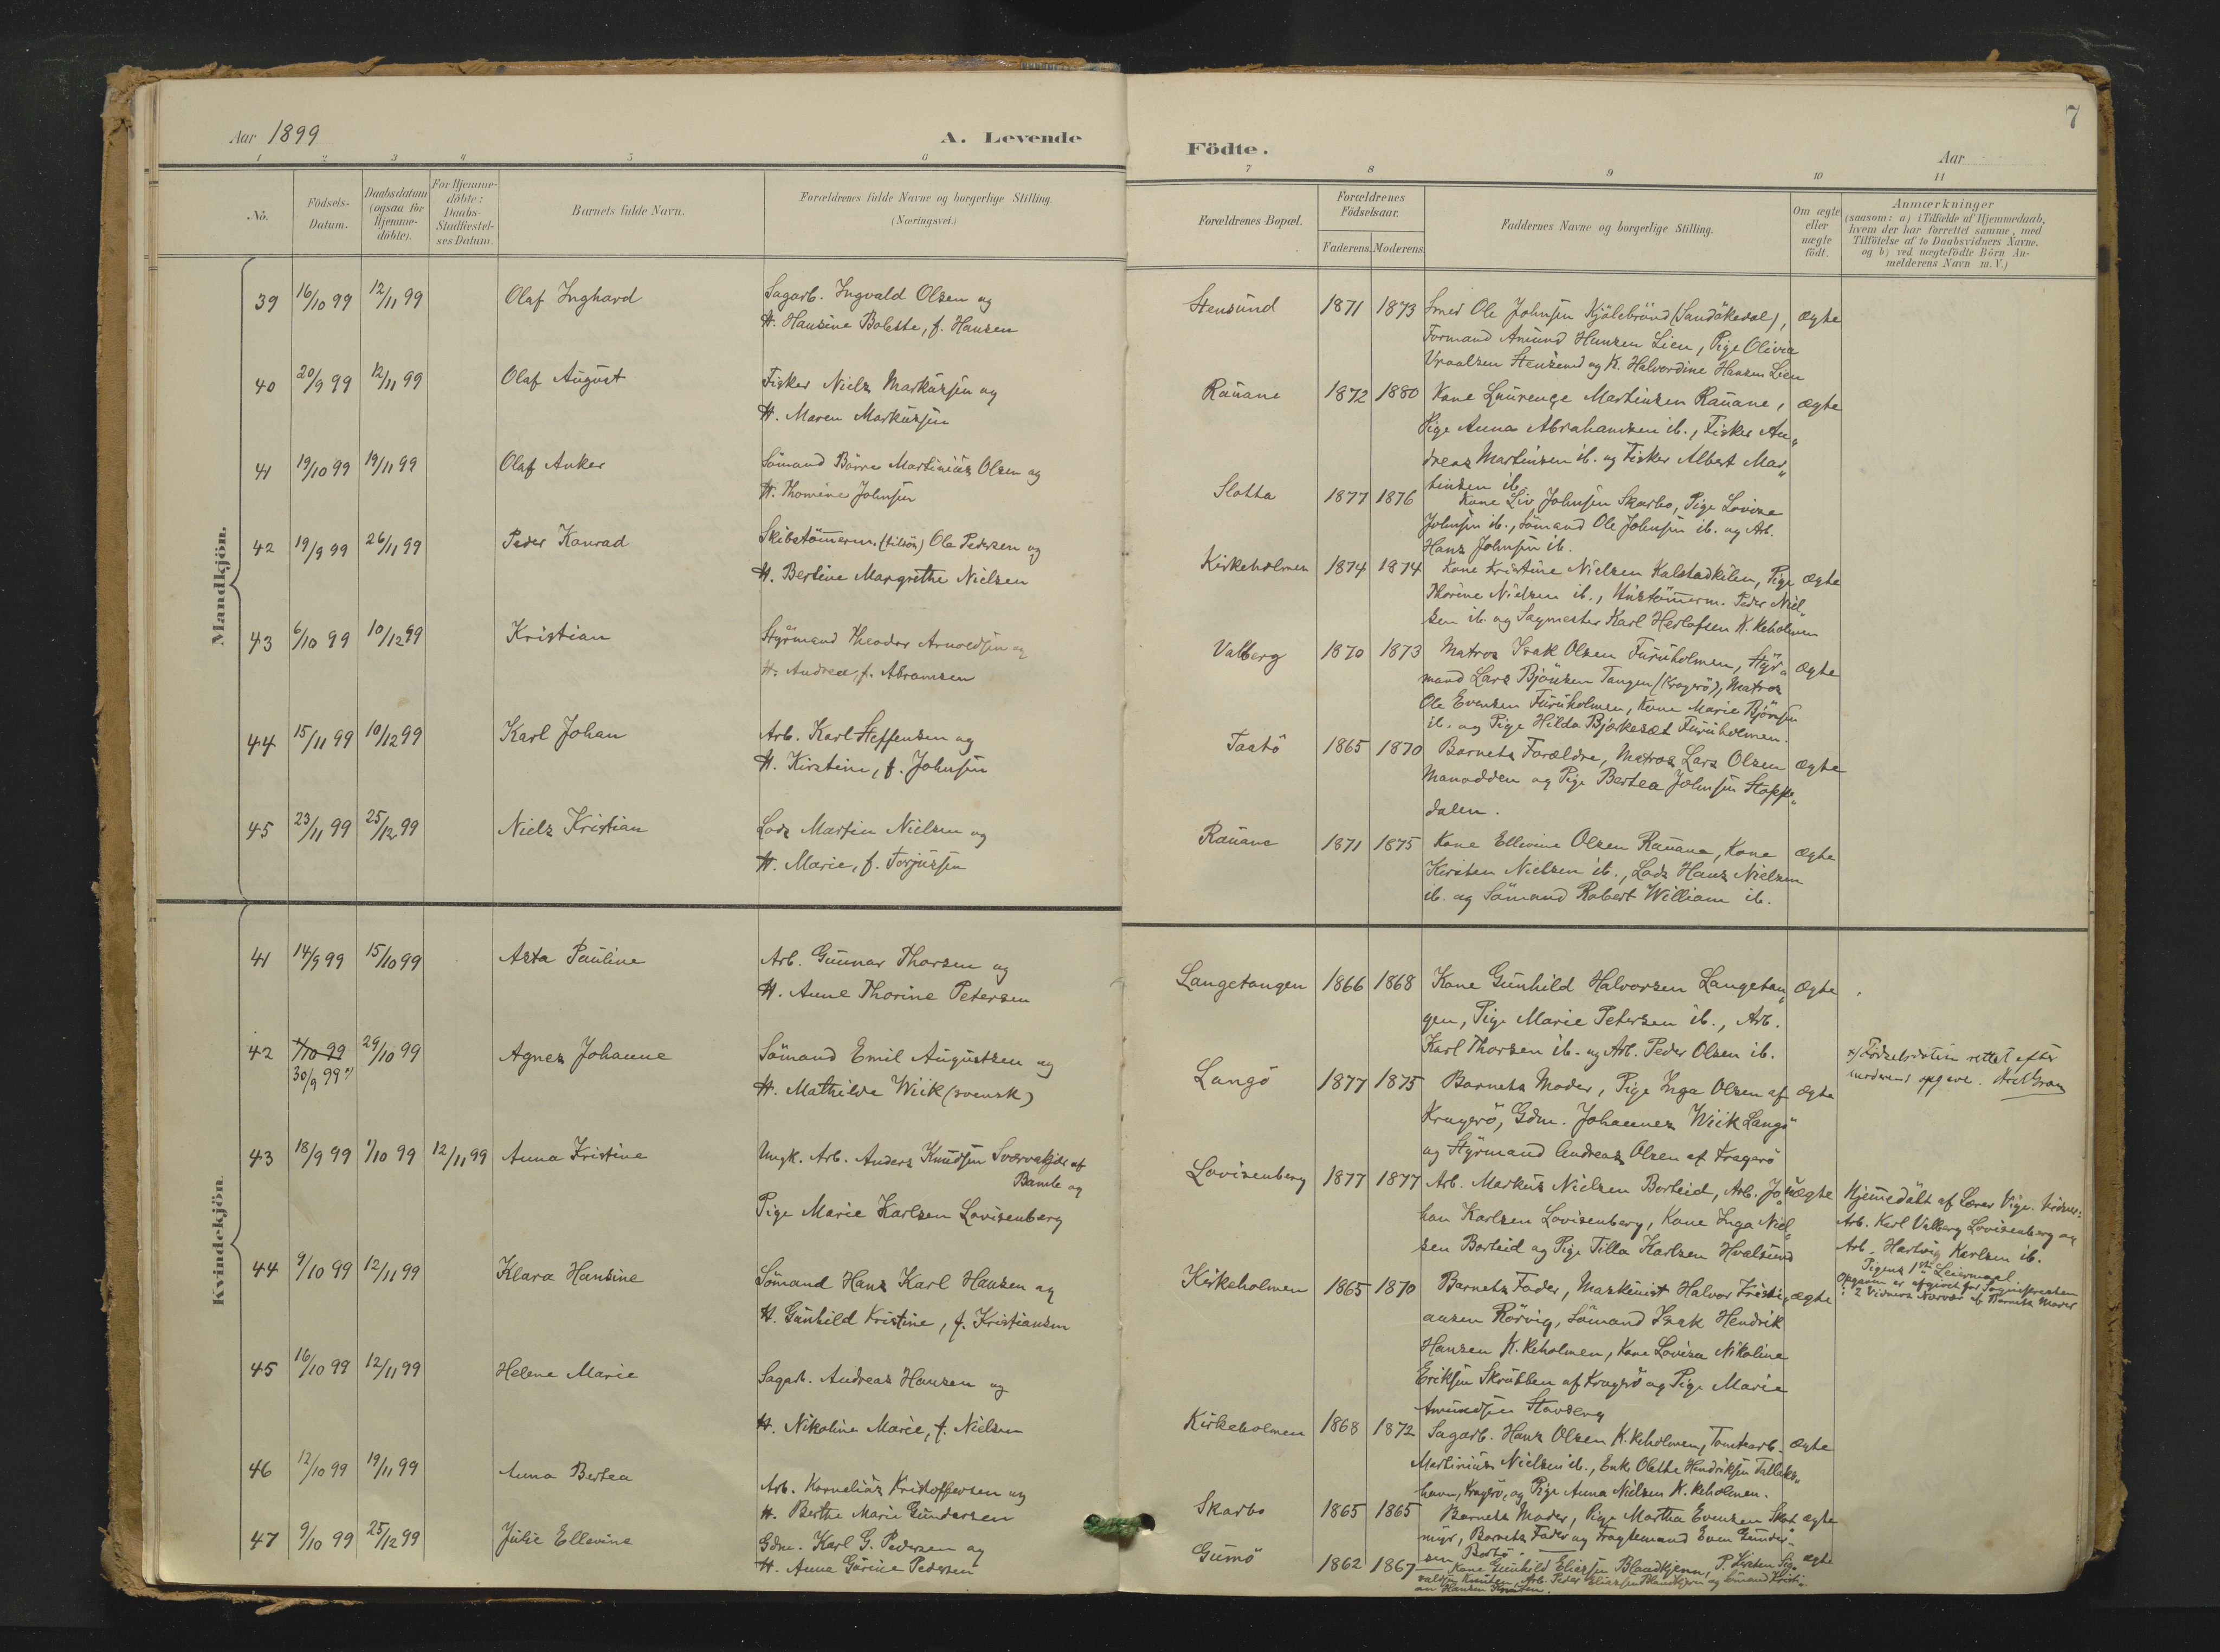 Aar 1899
A. Levende
1 2 3 4 5 6
No.
Födsels-
Datum.
Daabsdatum
(ogsaa for
Hjemme-
döbte).
For Hjemme-
döbte:
Daabs-
Stadfæstel-
ses Datum.
Barnets fulde Navn.
Forældrenes fulde Navne og borgerlige Stilling.
(Næringsvei.)
Mandkjön.
39 16/10 99 12/11 99 Olaf Inghard Sagarb. Ingvald Olsen og
H. Hansine Bolette, f. Hansen
40 20/9 99 12/11 99 Olaf August Fisker Niels Markussen og
H. Maren Markussen
41 19/10 99 19/11 99 Olaf Anker Sömand Börre Martinius Olsen og
H. Thomine Johnsen
42 19/9 99 26/11 99 Peder Konrad Skibstömerm. (tilsös) Ole Pedersen og
H. Bertine Margrethe Nielsen
43 6/10 99 10/12 99 Kristian Styrmand Theodor Arnoldsen og
H. Andrea, f. Abramsen
44 15/11 99 10/12 99 Karl Johan Arb. Karl Steffensen og
H. Kirstine, f. Johnsen
45 23/11 99 25/12 99 Niels Kristian Lods Martin Nielsen og
H. Marie, f. Torjussen
Kvindekjön.
41 14/9 99 15/10 99 Asta Pauline Arb. Gunnar Thorsen og
H. Anne Thorine Petersen
42 4/10 99 29/10 99 Agnes Johanne Sömand Emil Augustsen og
30/9 99 x) H. Mathilde Wiik (svensk)
43 18/9 99 1/10 99 12/11 99 Anna Kristine Ungk. Arb. Anders Knudsen Sværvakjær af
Bamle og
Pige Marie Karlsen Lovisenberg
44 9/10 99 12/11 99 Klara Hansine Sömand Hans Karl Hansen og
H. Gunhild Kristine, f. Kristiansen
45 16/10 99 12/11 99 Helene Marie Sagarb. Andreas Hansen og
H. Nikoline Marie, f. Nielsen
46 12/10 99 19/11 99 Anna Bertea Arb. Kornelius Kristoffersen og
H. Berthe Marie Gundersen
47 9/10 99 25/12 99 Julie Ellevine Gdm. Karl G. Pedersen og
H. Anne Gurine Pedersen
7
Födte.
Aar
7 8 9 10 11
Forældrenes Bopæl.
Forældrenes
Födselsaar.
Faderens. Moderens.
Faddernes Navne og borgerlige Stilling.
Om ægte
eller
uægte
födt.
Anmærkninger
(saasom: a) i Tilfælde af Hjemmedaab,
hvem der har forrettet samme, med
Tilföielse af to Daabsvidners Navne,
og b) ved uægtefödte Börn An-
melderens Navn m. V.)
Stensund 1871 1873 Smed Ole Johnsen Kjölebrönd (Sandökedal), ægte
Formand Amund Hansen Lien, Pige Olivia
Vraalsen Stensund og K. Halvordine Hansen Lien
Rauane 1872 1880 Kone Laurenze Martinsen Rauane, ægte
Pige Anna Abrahamsen ib., Fisker An„
dreas Martinsen ib. og Fisker Albert Mar„
tinsen ib.
Slotta 1877 1876 Kone Liv Johnsen Skarbo, Pige Lovise
Johnsen ib., Sömand Ole Johnsen ib. og Arb.
Hans Johnsen ib.
Kirkeholmen 1874 1874 Kone Kristine Nielsen Kalstadkilen, Pige ægte
Thorine Nielsen ib., Peder Niel„
sen ib. og Sagmester Karl Herlofsen K.keholmen
Valberg 1870 1873 Matros Isak Olsen Furuholmen, Styr„ ægte
mand Lars Björnsen Tangen (Kragerö), Matros
Ole Evensen Furuholmen, Kone Marie Björnsen
ib. og Pige Hilda Bjarkesæt Furuholmen.
Taatö 1865 1870 Barnets Forældre, Matros Lars Olsen ægte
Manodden og Pige Bertea Johnsen Stoppe„
dalen.
Rauane 1871 1875 Kone Ellevine Olsen Rauane, Kone ægte
Kirsten Nielsen ib., Lods Hans Nielsen
ib. og Sömand Robert William ib.
Langetangen 1866 1868 Kone Gunhild Halvorsen Langetan„ ægte
gen, Pige Marie Petersen ib., Arb.
Karl Thorsen ib. og Arb. Peder Olsen ib.
Langö 1877 1875 Barnets Moder, Pige Inga Olsen af ægte
Kragerö, Gdm. Johannes Wiik Langö
og Styrmand Andreas Olsen af Kragerö
x) Födselsdatum rettet efter
moderens opgave.
Lovisenberg 1877 1877 Arb. Markus Nielsen Borteid, Arb. Jo„ uægte
han Karlsen Lovisenberg, Kone Inga Niel„
sen Borteid og Pige Tilla Karlsen Hvalsund
Hjemmedöbt af Lærer Vige. Vidner:
Arb. Karl Valberg Lovisenberg og
Arb. Hartvig Karlsen ib.
Pigens 1ste Leiermaal.
Opgaven er afgivet for Sognepræsten
i 2 Vidners Nærvær af Barnets Moder
Kirkeholmen 1865 1870 Barnets Fader, Maskinist Halvor Kristi„ ægte
ansen Rörvig, Sömand Isak Hendrik
Hansen K.keholmen, Kone Lovise Nikoline
Eriksen Skrubben af Kragerö og Pige Marie
Amundsen Stavseng
Kirkeholmen 1868 1872 Sagarb. Hans Olsen K.keholmen, Tomtearb. ægte
Martinius Nielsen ib., Enke Olethe Hendriksen Tallaks„
havn, Kragerö, og Pige Anna Nielsen K.keholmen.
Skarbo 1865 1865 Barnets Moder, Pige Martha Evensen Skot„ ægte
myr, Barnets Fader og Fragtemand Even Gunder„
sen Portö.
Gumö 1862 1867 Kone Gunhild Eliassen Blandkjenn, P. Kirsten Sig„ ægte
valdsen Knuten, Arb. Peder Eliassen Blandkjenn og Sömand Kristi„
an Hansen Knuten.